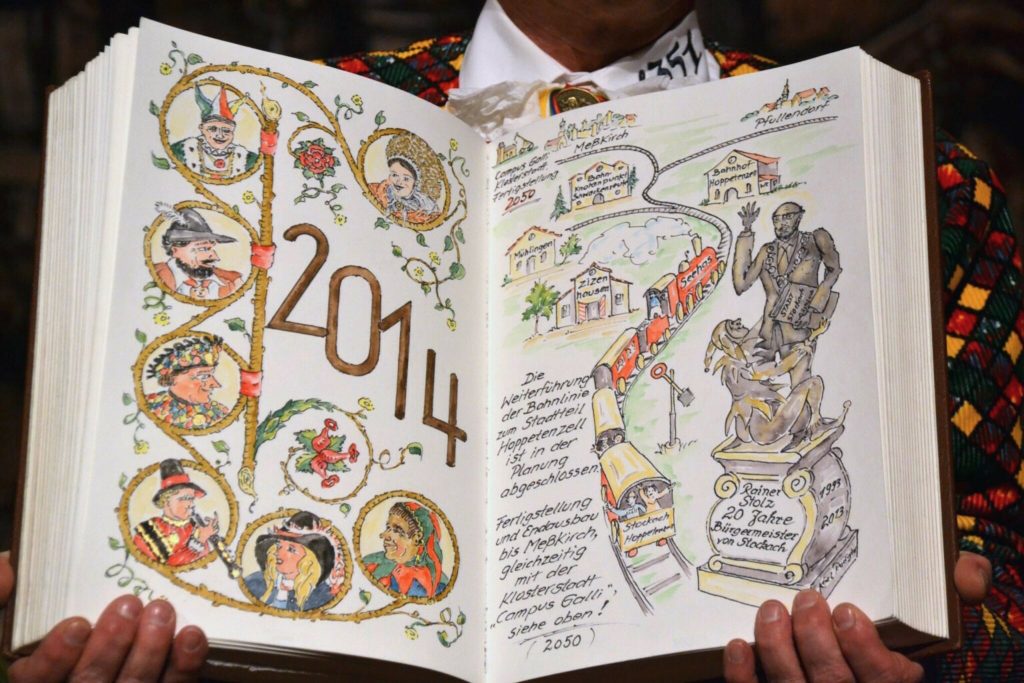 1351
2014
Campus Galli
Klosterstadt
Fertigstellung
2050
Meßkirch
Pfullendorf
Bahn-
Knotenpunkt
Bahnhof
Hoppetenzell
Mühlingen
Zizen
hausen
Seehas
Die
Weiterführung
der Bahnlinie
zum Stadtteil
Hoppetenzell
ist in der
Planung
abgeschlossen.
Fertigstellung
und Endausbau
bis Meßkirch,
gleichzeitig
mit der
Klosterstadt
"Campus Galli",
siehe oben!
(2050)
Stockach
Hoppetenzell
STADT
Rainer
Stolz
20 Jahre
Bürgermeister
von Stockach
1993
2013